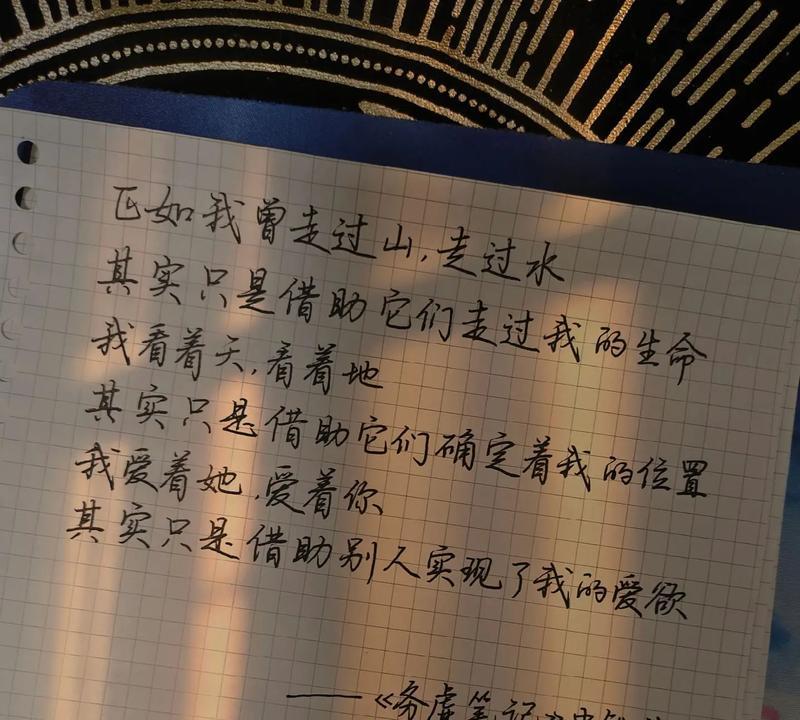 正如我曾走过山,走过水
其实只是借助它们走过我的生命
我看着天,看着地
其实只是借助它们确定着我的位置
我爱着她,爱着你
其实只是借助别人实现了我的爱欲
——《务虚笔记》史铁生